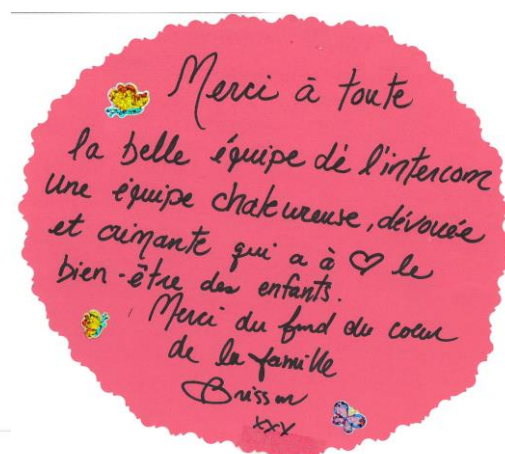 Merci à toute
la belle équipe de l'intercom
une équipe chaleureuse, dévouée
et aimante qui a à ♡ le
bien-être des enfants.
Merci du fond du coeur
de la famille
Brisson
xxx